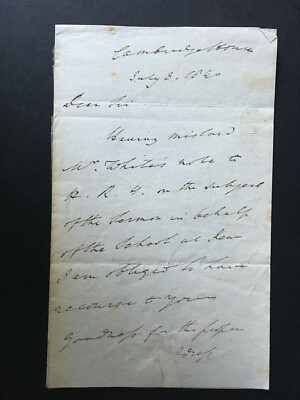 Cambridge House
July 3. 1840
Dear Sir
Having mislaid
Mr. White's note to
H. R. H. on the subject
of the Sermon in behalf
of the School at Kew
I am obliged to have
recourse to your
goodness for the proper